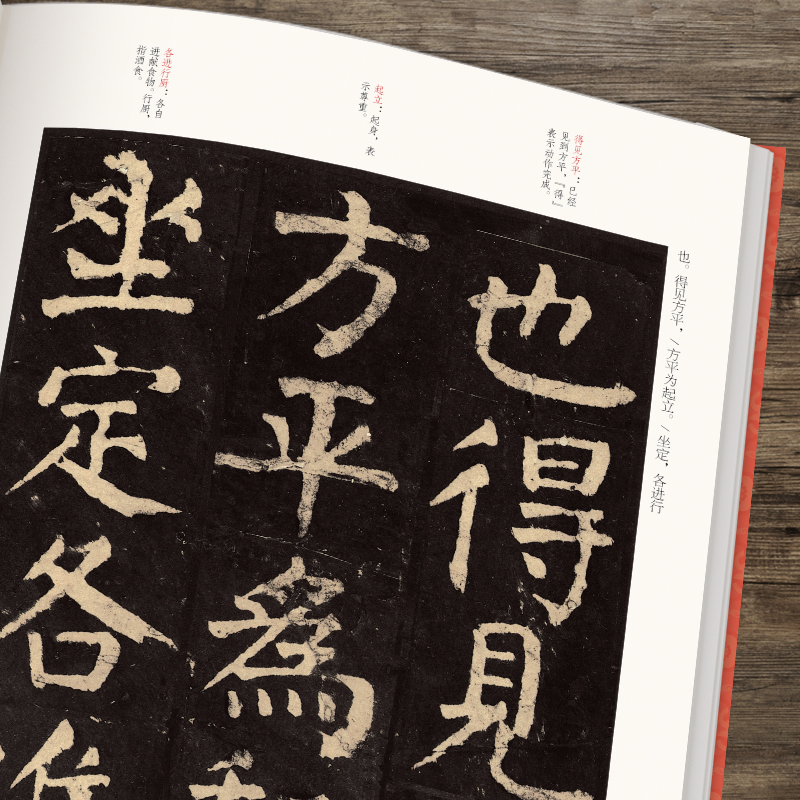 得见方平：已经
见到方平，『得』
表示动作完成。
起立：起身，表
示尊重。
各进行厨：各自
进献食物。行厨，
指酒食。
也。得见方平，＼方平为起立。＼坐定，各进行
也得見
方平為
坐定各進